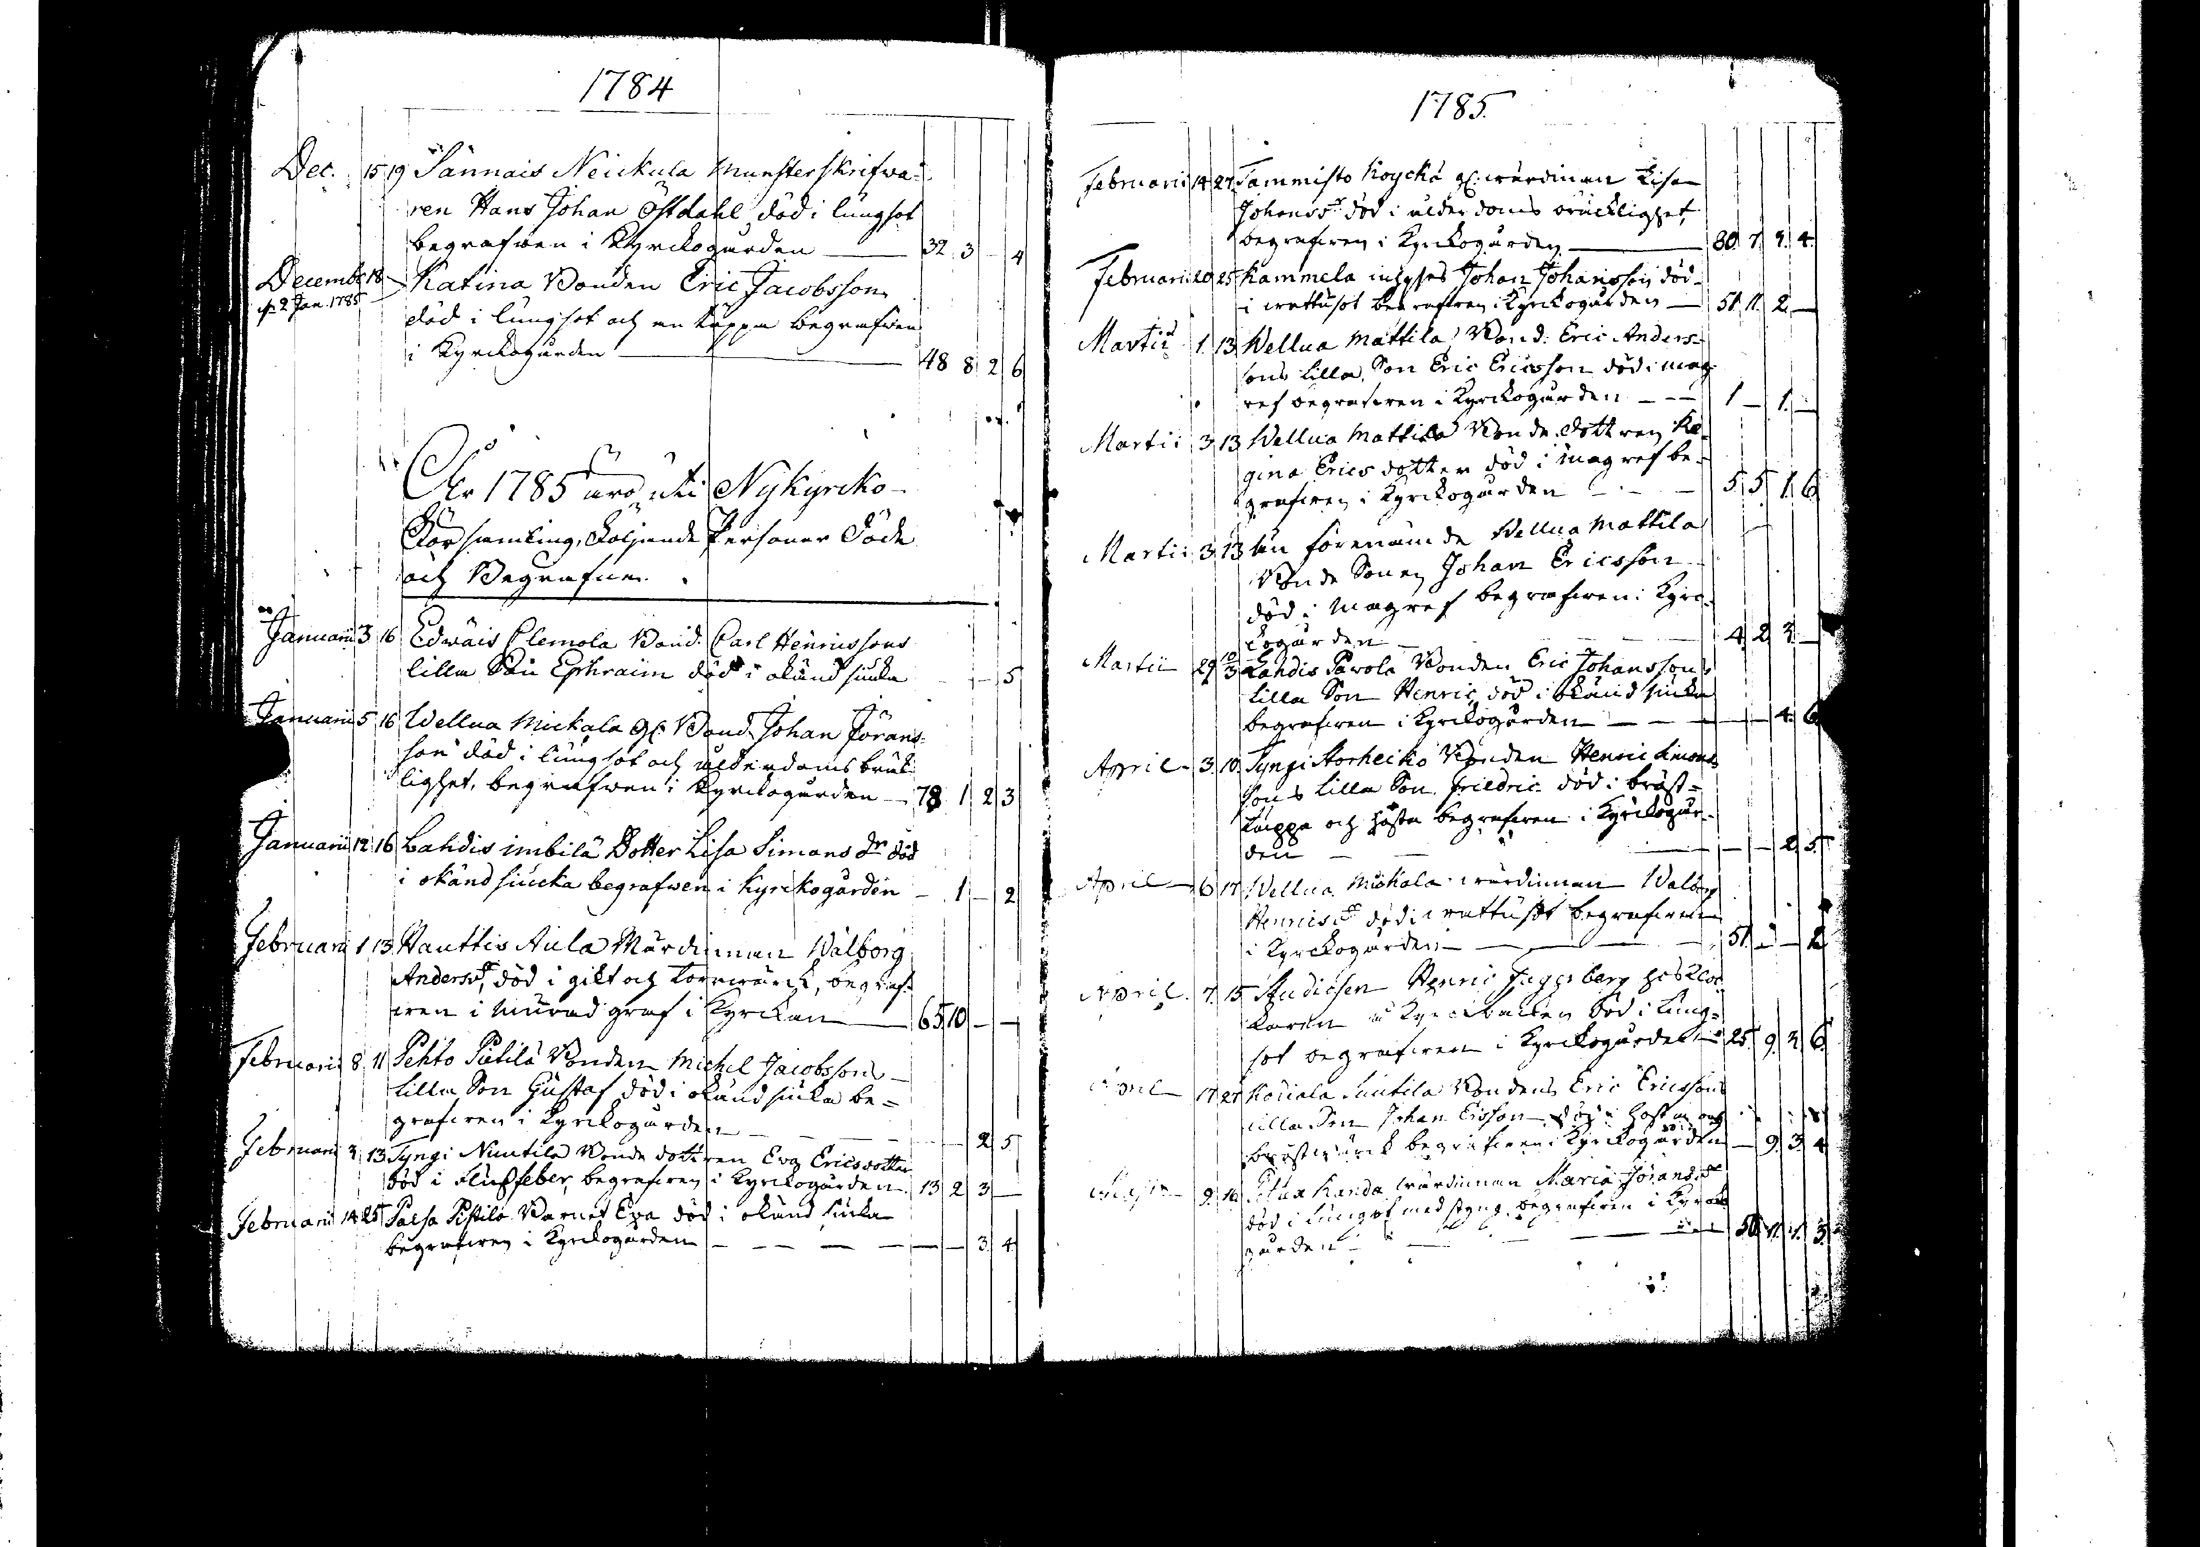 1784
Dec. 15 19 Sännäis Neickula Munsterskrifwa=
ren Hans Johan Östdahl död i lungsot
begrafwen i Kyrckogården — 32 3 – 4
Decemb: 18 Katina Bonden Eric Jacobsson
d. 2 Jan. 1785
död i lungsot och en käppa begrafwen
i Kyrckogården — 48 8 2 6
Åhr 1785 äro uti Nykyrcko
Församling, Följande Personer Döde
och Begrafne.
Januarii 3 16 Edwäis Clemola Bond. Carl Henricssons
lilla Son Ephraim död i okänd siucka – – 5
Januarii 5 16 Wellua Mickala gl. Bond. Johan Jörans=
son död i lungsot och ålderdoms bräck
lighet, begrafwen i Kyrckogården — 78 1 2 3
Januarii 12 16 Lahdis imbilä Dotter Lisa Simons dr död
i okänd siucka begrafwen i Kyrckogården – 1 – 2
Februarii 1 13 Hauttis Aula Wärdinnan Walborg
Andersdr, död i gikt och torrwärck, begraf=
wen i murad graf i Kyrckan — 65 10 – –
Februarii 8 11 Pehto Pietilä Bonden Michel Jacobssons
lilla Son Gustaf död i okänd siucka be=
grafwen i Kyrckogården — – 2 5
Februarii 3 13 Tyngi Nuutila Bonde dottren Eva Ericsdotter
död i Flussfeber, begrafwen i Kyrckogården 13 2 3 –
Februarii 14 25 Palsa Pistilä Barnet Eva död i okänd siucka
begrafwen i Kyrckogården — – 3 4
1785.
Februarii 14 27 Tammisto Koycka gl. wärdinnan Lisa
Johansdr död i ålderdoms bräcklighet,
begrafwen i Kyrckogården — 80 7 2 4
Februarii 20 25 Kammela inhyses Johan Johansson död
i wattusot begrafwen i Kyrckogården — 51 11 2 –
Martii 1 13 Wellua Mattila Bond: Eric Anders=
sons lilla Son Eric Ericsson död i mag
ref begrafwen i Kyrckogården — 1 – 1 –
Martii 3 13 Wellua Mattila Bonde dottren Re
gina Erics dotter död i magref be=
grafwen i Kyrckogården — 5 5 1 6
Martii 3 13 förenämde Wellua Mattila
Bonde Sonen Johan Ericsson
död i magref begrafwen i Kyrc=
kogården — 4 2 3 –
Martii 29 10/3 Lahdis Pavola Bonden Eric Johanssons
lilla Son Henric död i okänd siucka
begrafwen i Kyrckogården — – 4 6
April 3 10 Tyngi Storheiko Bonden Henric Simons
sons lilla Son Friedric död i bröst=
käppa och hosta begrafwen i Kyrckogår
den — – 2 5
April 6 17 Wellua Mickala wärdinnan Walborg
Henricsdr död i wattusot begrafwen
i Kyrckogården — 51 – – 2
April 7 15 Studiosen Henric Jagersberg hos Kloc
karen å Kyrckbacken död i Lung=
sot begrafwen i Kyrckogården — 25 9 2 6
April 17 27 Koriala Suutila Bondens Eric Ericssons
lilla Son Johan Ersson död i hosta och
bröstwärck begrafwen i Kyrckogården — 9 3 4
9 Kanda wärdinnan Maria Jöransdr
död i Lungsot med styng, begrafwen i Kyrcko
gården — 50